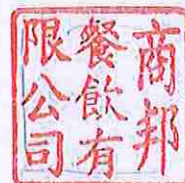 商邦
餐飲有
限公司